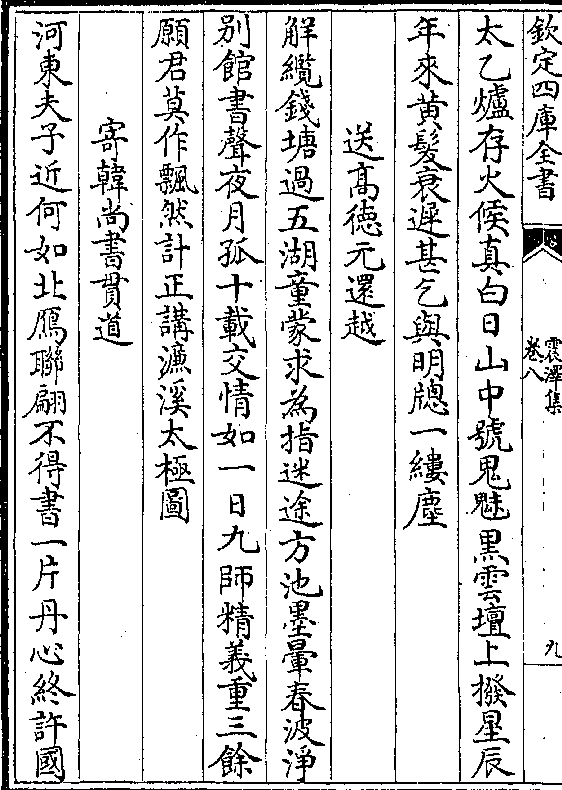 欽定四庫全書
震澤集
卷八
九
太乙爐存火候真白日山中號鬼魅黒雲壇上撥星辰
年來黄髪衰遲甚乞與明牎一縷塵
送髙徳元還越
解纜錢塘過五湖童蒙求為指迷途方池墨暈春波淨
别館書聲夜月孤十載交情如一日九師精義重三餘
願君莫作飄然計正講濂溪太極圖
寄韓尚書貫道
河東夫子近何如北鴈聯翩不得書一片丹心終許國